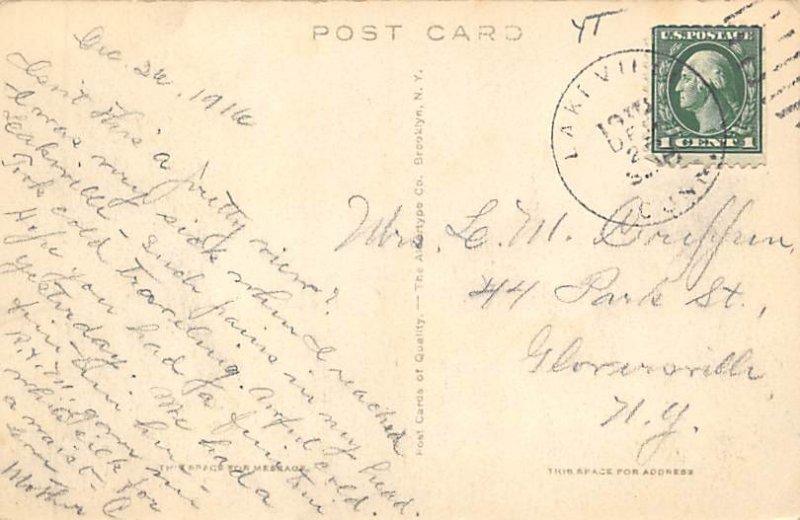 POST CARD
Dec. 26, 1916
Isn't this a pretty view?
I was very sick when I reached
Lakeville - such pains in my head.
Took cold traveling. awful cold.
Hope you had a fine time
yesterday. We had a
fine time here.
gave me
which sick for
a waist-
Mother
THIS SPACE FOR MESSAGE
Post Cards of Quality. — The Albertype Co., Brooklyn, N. Y.
U.S. POSTAGE
1 CENT 1
LAKEVILLE
CONN.
Mrs. L. M.
44 Park St.,
Gloversville
N.Y.
THIS SPACE FOR ADDRESS